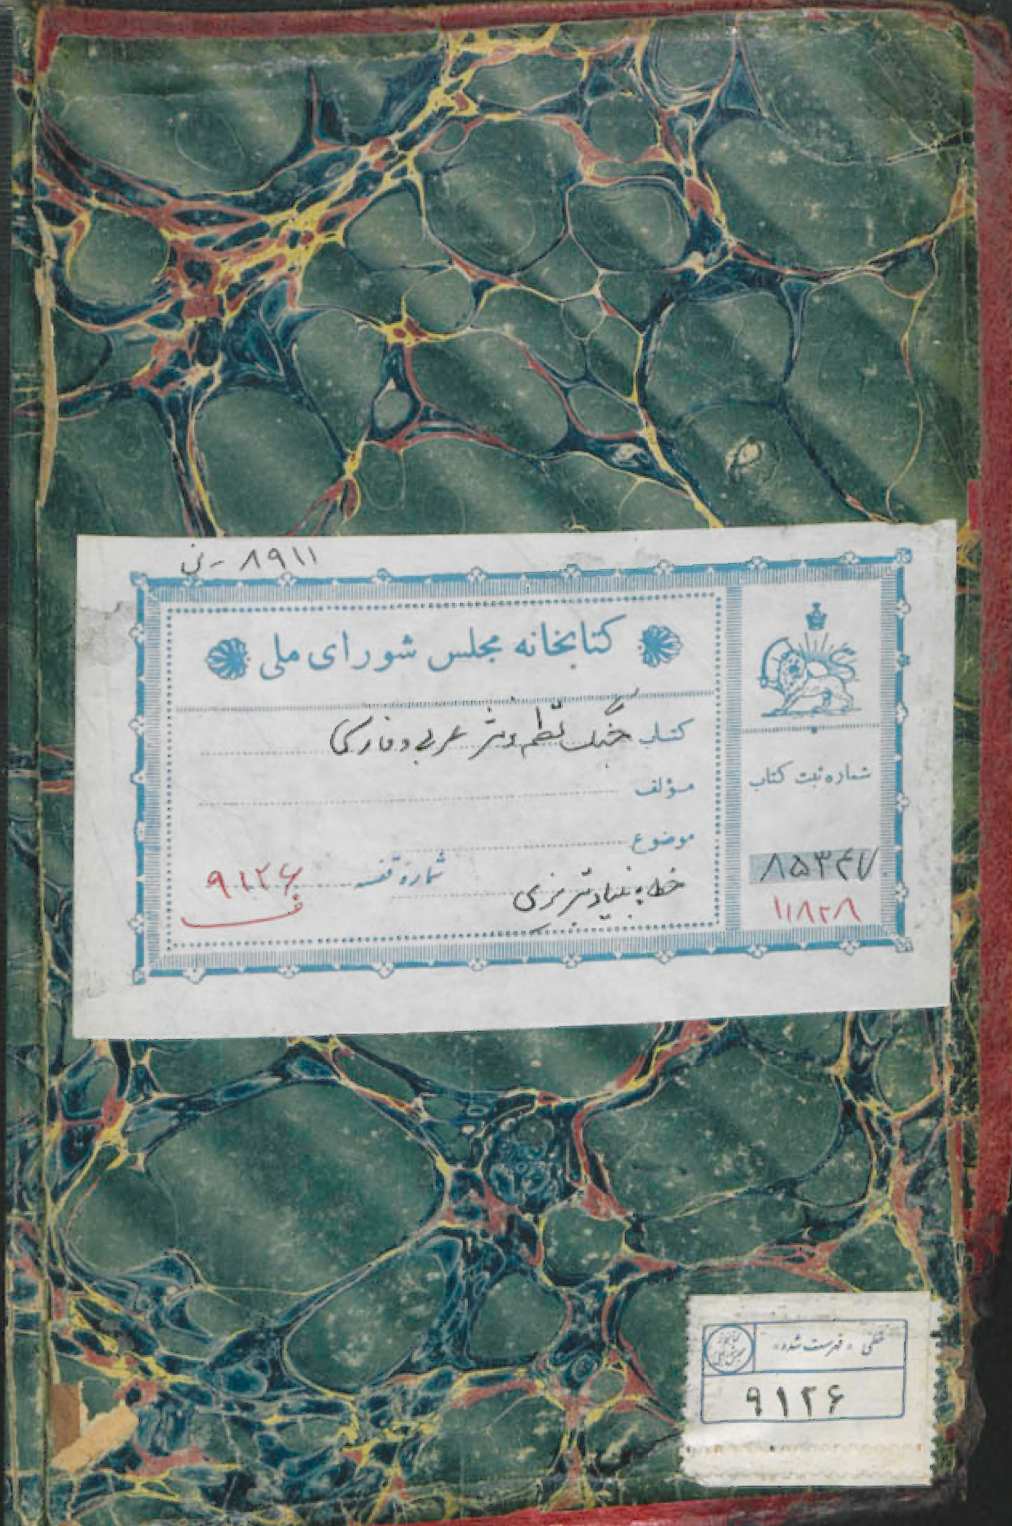 ۸۹۱۱ - نی
کتابخانه مجلس شورای ملی
کتاب جنگ نظم و نثر عربی و فارسی
مؤلف
موضوع
شماره قفسه ۹۱۲۶
ف
شماره ثبت کتاب
۸۵۳۴۷
۱۱۸۲۸
خطی «فهرست شده»
۹۱۲۶